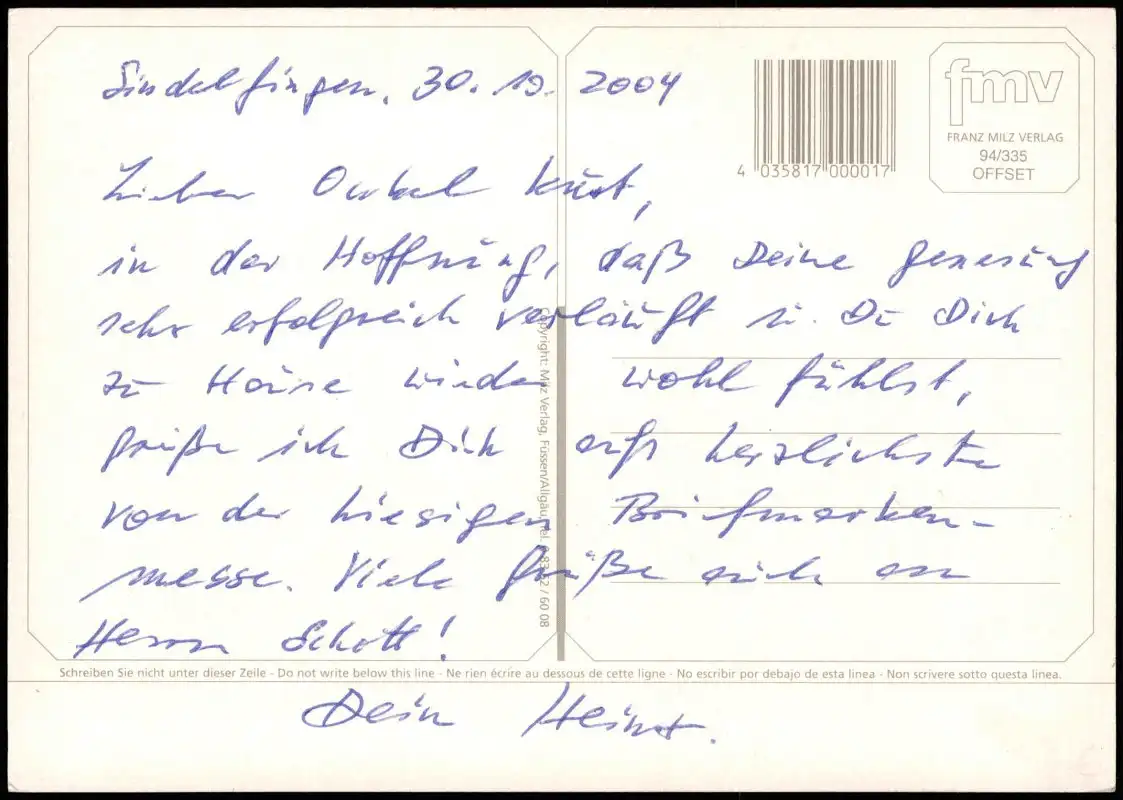 Sindelfingen, 30. 10. 2004
Lieber Onkel Kurt,
in der Hoffnung, daß Deine Genesung
sehr erfolgreich verläuft u. Du Dich
zu Hause wieder wohl fühlst,
grüße ich Dich aufs herzlichste
von der hiesigen Briefmarken-
messe. Viele Grüße auch an
Herrn Schott!
Dein
4 035817 000017
fmv
FRANZ MILZ VERLAG
94/335
OFFSET
Copyright: Milz Verlag, Füssen/Allgäu, Tel. / 60 08
Schreiben Sie nicht unter dieser Zeile - Do not write below this line - Ne rien écrire au dessous de cette ligne - No escribir por debajo de esta linea - Non scrivere sotto questa linea.